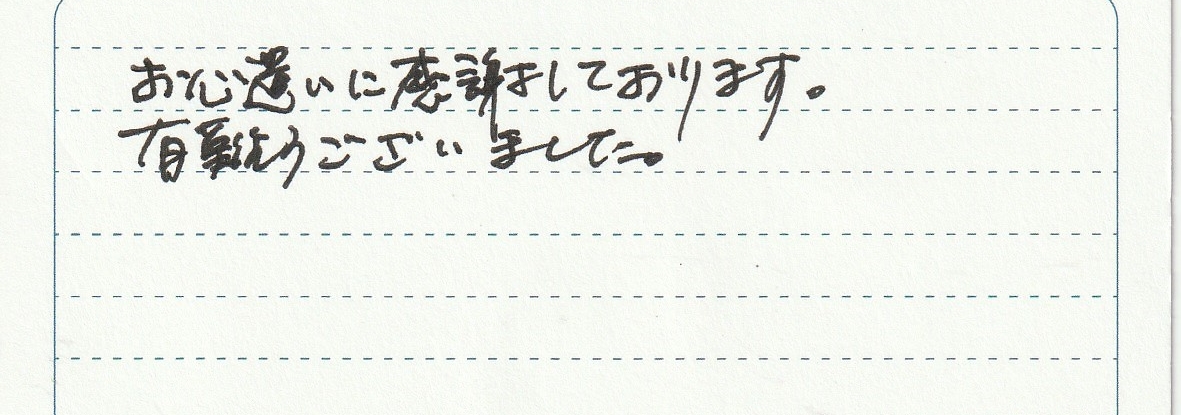 お心遣いに感謝をしております。
有難うございました。